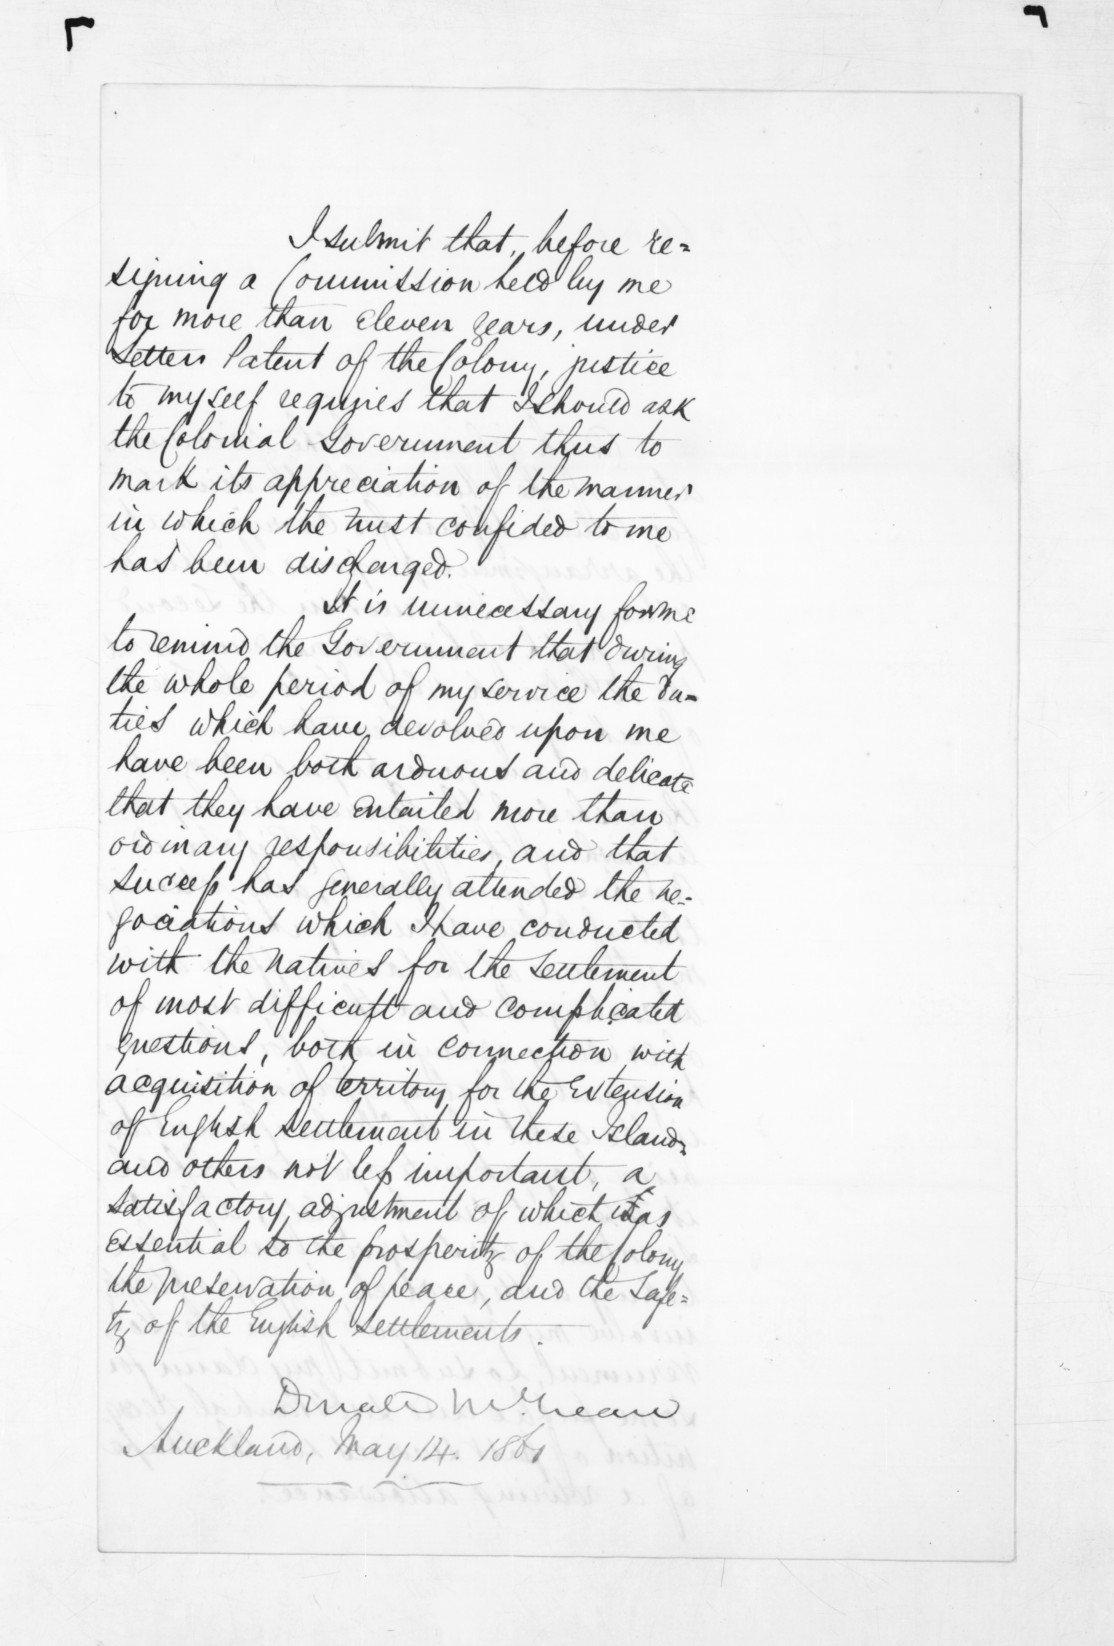 I submit that, before re=
signing a Commission held by me
for more than eleven years, under
Letters Patent of the Colony, justice
to myself requires that I should ask
the Colonial Government thus to
mark its appreciation of the manner
in which the trust confided to me
has been discharged.
It is unnecessary for me
to remind the Government that during
the whole period of my service the du=
ties which have devolved upon me
have been both arduous and delicate
that they have entailed more than
ordinary responsibilities, and that
success has generally attended the ne=
gociations which I have conducted
with the Natives for the settlement
of most difficult and complicated
questions, both in connection with
acquisition of territory for the extension
of English settlement in these Islands
and others not less important, a
satisfactory adjustment of which was
essential to the prosperity of the Colony
the preservation of peace, and the safe=
ty of the English settlements.
Donald McLean
Auckland, May 14. 1861